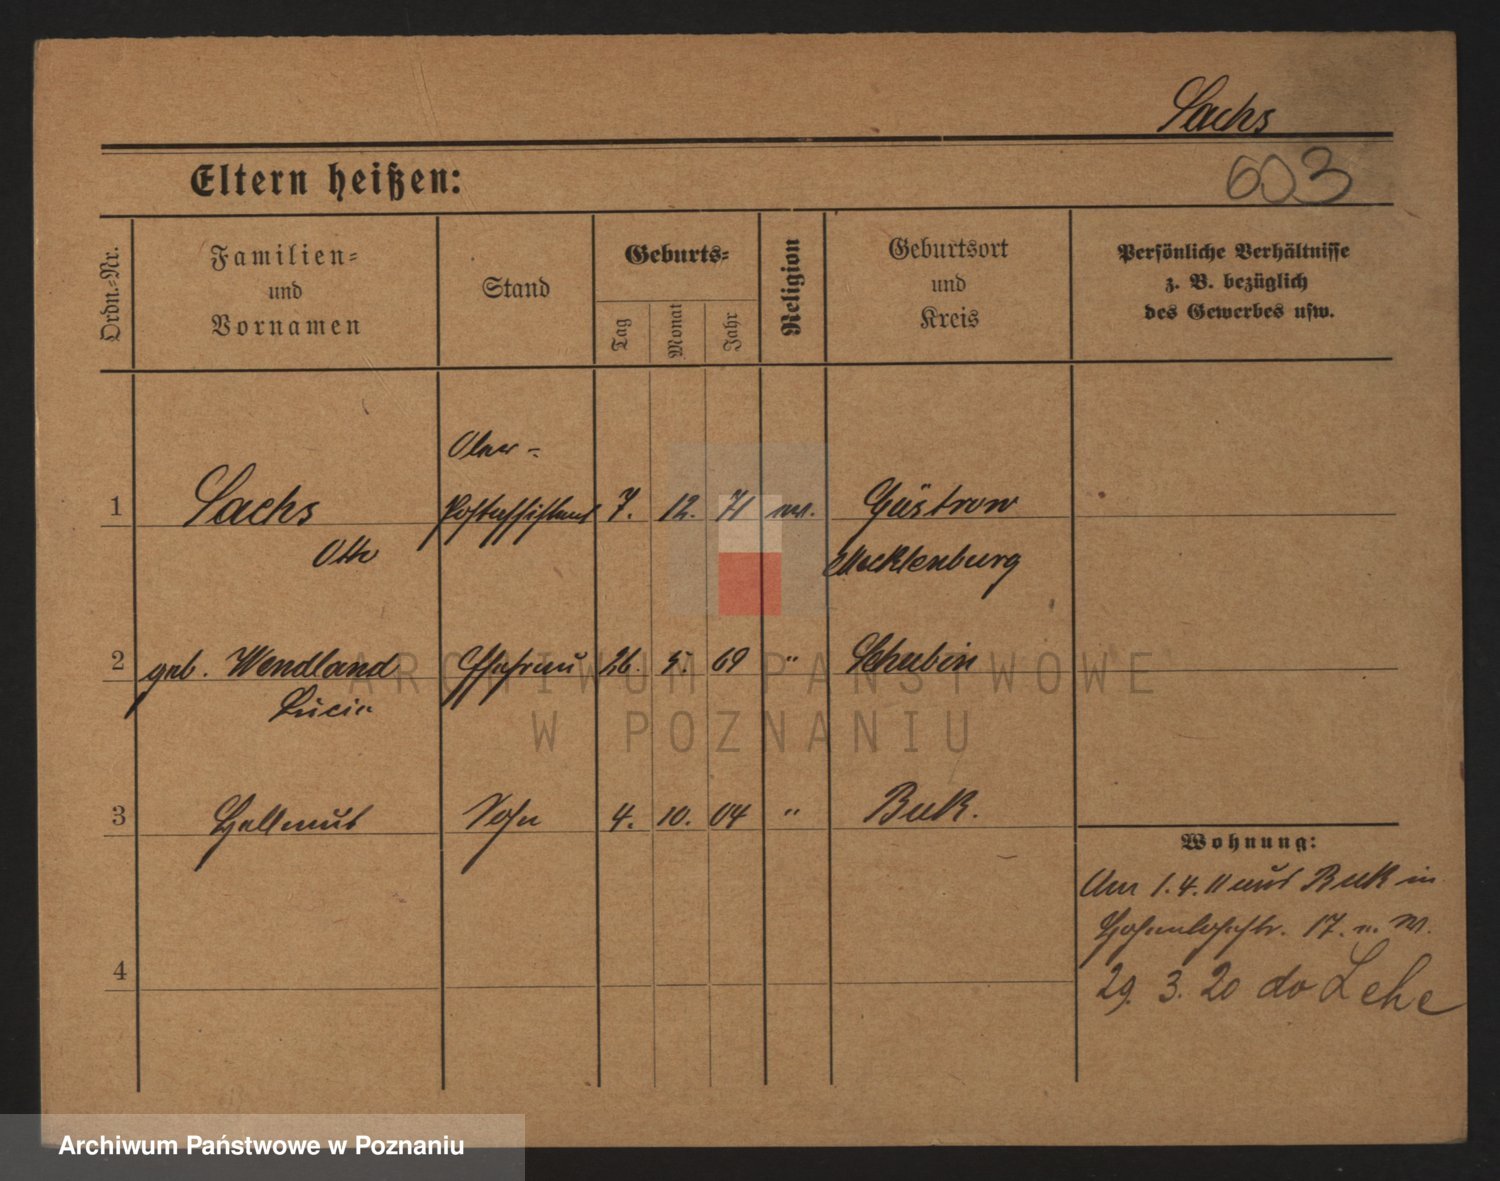 Sachs
603
Eltern heißen:
Ordn.-Nr.
Familien-
und
Vornamen
Stand
Geburts-
Tag
Monat
Jahr
Religion
Geburtsort
und
Kreis
Persönliche Verhältnisse
z. B. bezüglich
des Gewerbes usw.
Ober-
1 Sachs Postassistent 7. 12. 71 ev. Güstrow
Otto Mecklenburg
2 geb. Wendland Ehefrau 26. 5. 69 " Schubin
Lucie
3 Hellmut Sohn 4. 10. 04 " Buk.
Wohnung:
Am 1.4.11 aus Buk in
Hohenlohestr. 17. W.
4
29. 3. 20 do Lehe
ARCHIWUM PAŃSTWOWE
W POZNANIU
Archiwum Państwowe w Poznaniu